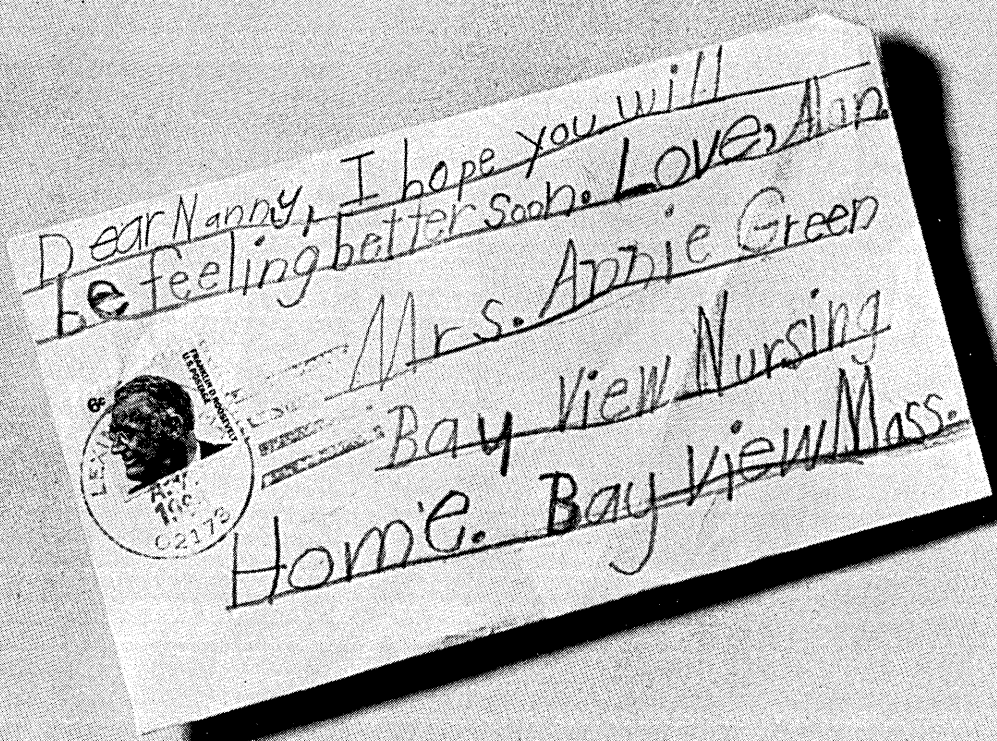 Dear Nanny, I hope you will
be feeling better soon. Love, Alan.
Mrs. Annie Green
Bay View Nursing
Home. Bay View Mass.
6¢
FRANKLIN D. ROOSEVELT
U.S. POSTAGE
LEX
02173